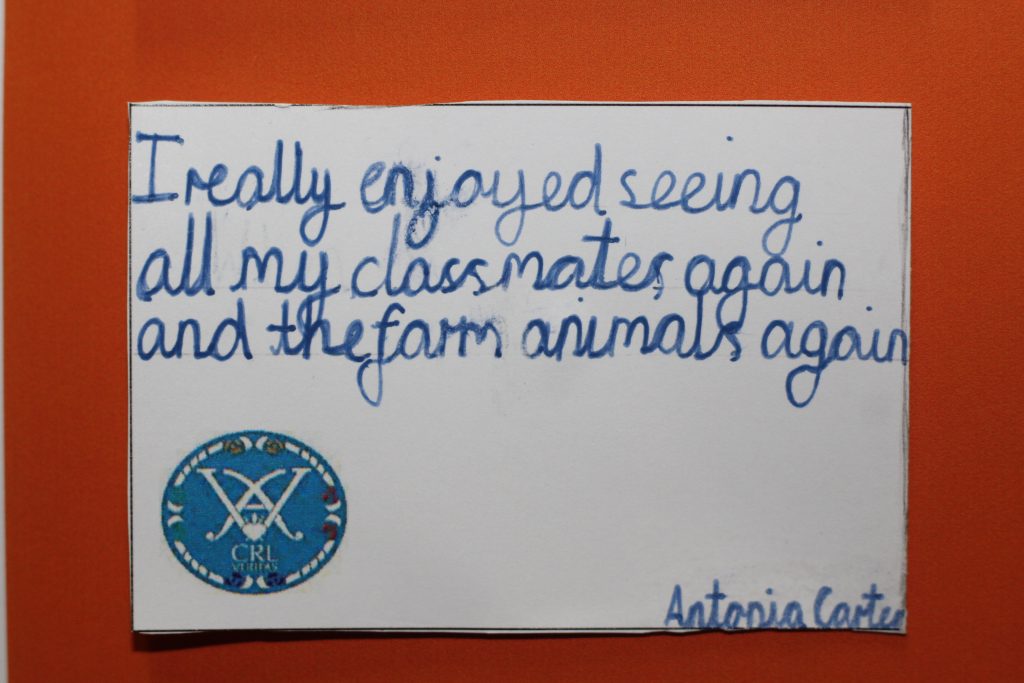 I really enjoyed seeing
all my classmates again
and the farm animals again
CRL
VERITAS
Antonia Carter